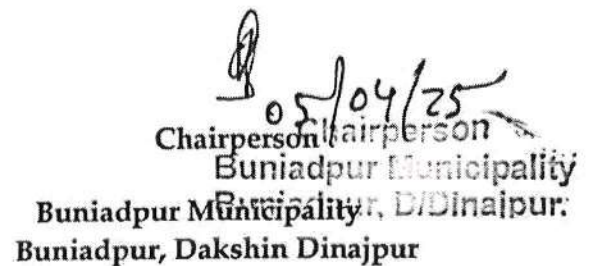 05/04/25
Chairperson Chairperson
Buniadpur Municipality
Buniadpur Municipality Buniadpur, D/Dinajpur.
Buniadpur, Dakshin Dinajpur